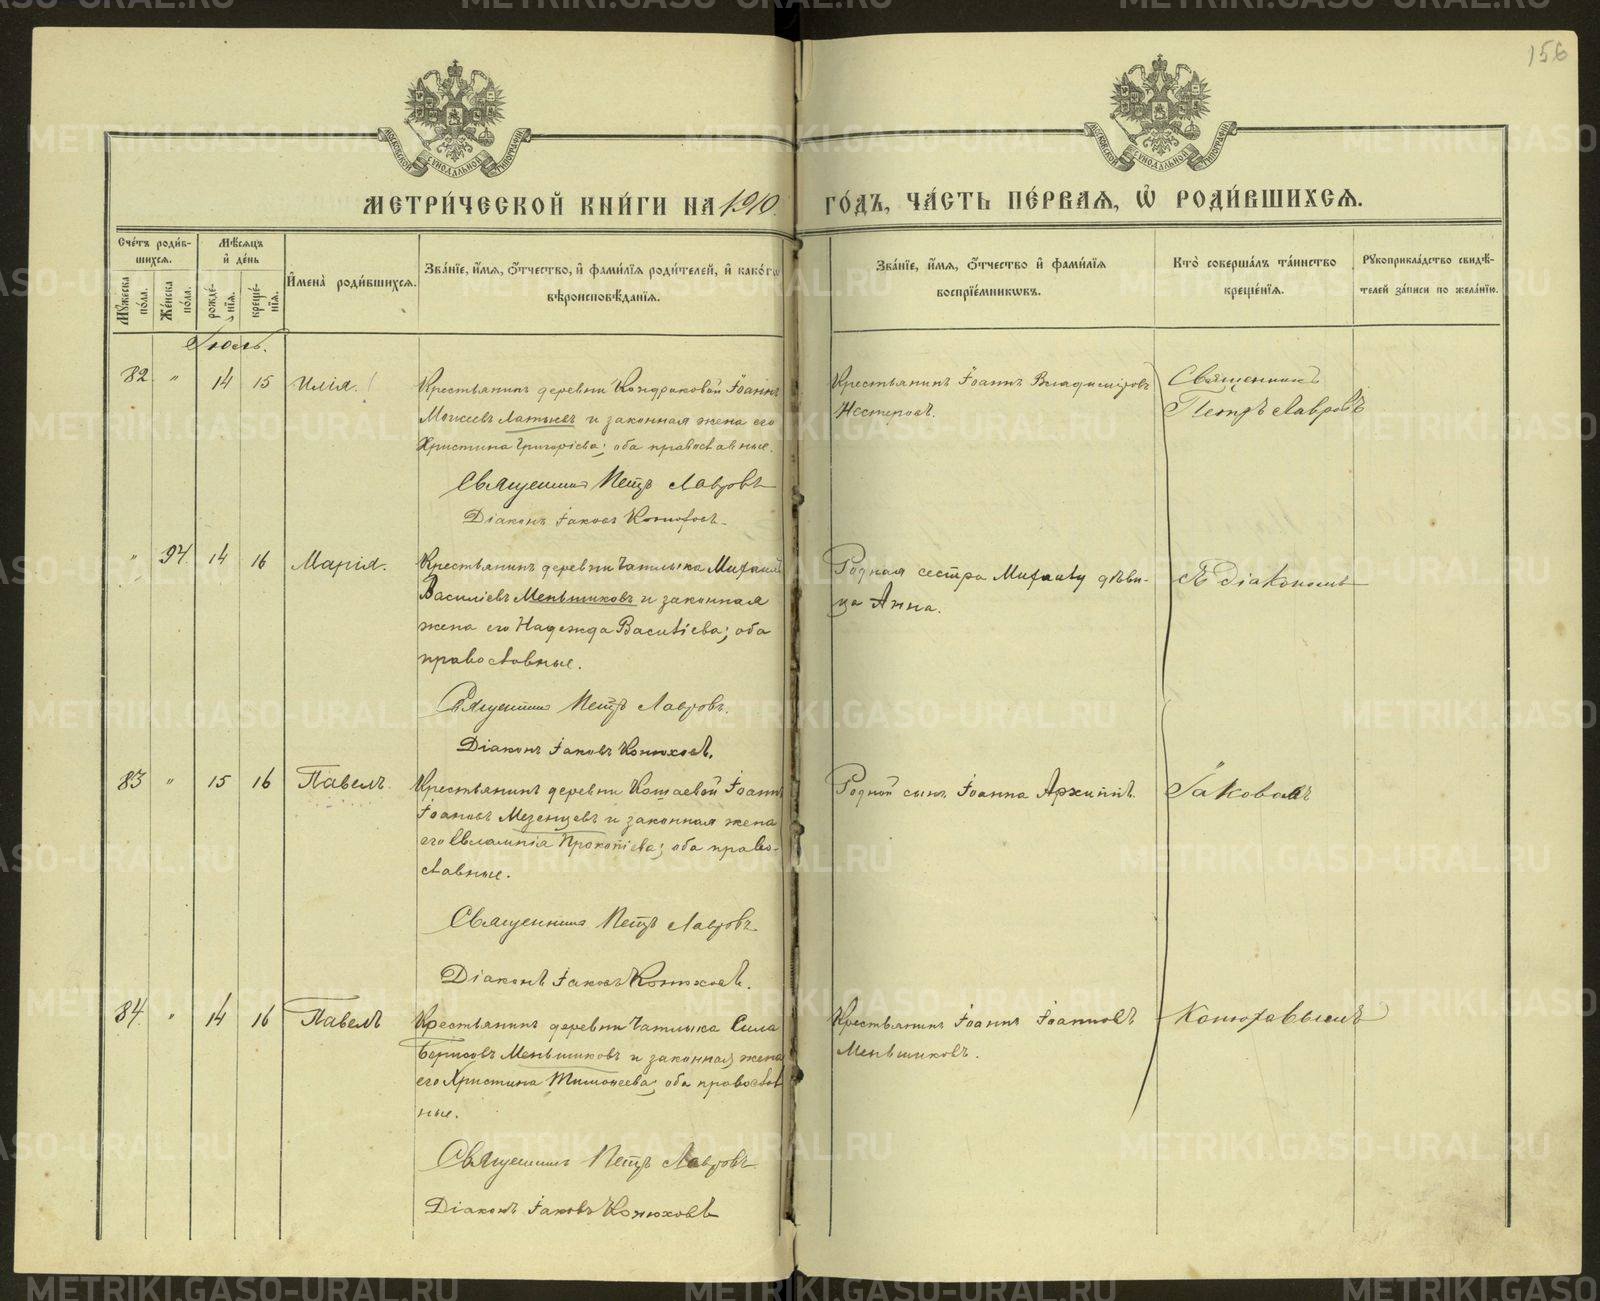 156
МОСКОВСКОЙ СѴНОДАЛЬНОЙ ТИПОГРАФІИ
МОСКОВСКОЙ СѴНОДАЛЬНОЙ ТИПОГРАФІИ
МЕТРИ́ЧЕСКОЙ КНИ́ГИ НА 1910 ГО́ДЪ, ЧА́СТЬ ПЕ́РВАЯ, Ѡ҆ РОДИ́ВШИХСЯ.
Сче́тъ роди́в-
шихся.
Мꙋ́жеска по́ла.
Же́нска по́ла.
Мѣ́сяцъ
и҆ де́нь
рожде́-
нїя.
креще́-
нїя.
И҆мена̀ роди́вшихся.
Зва́нїе, и҆́мя, ѻ҆́тчество, и҆ фами́лїя роди́телей, и҆ како́гѡ
вѣроисповѣ́данїя.
Зва́нїе, и҆́мя, ѻ҆́тчество и҆ фами́лїя
воспрїе́мникѡвъ.
Кто̀ соверша́лъ та́инство
креще́нїя.
Рꙋкоприкла́дство свидѣ́-
телей за́писи по жела́нїю.
Іюль.
82 " 14 15 Илія.
Крестьянинъ деревни Кондраковой Іоаннъ
Моисеевъ Латыевъ и законная жена его
Христина Григоріева; оба православные.
Священникъ Петръ Лавровъ
Діаконъ Іаковъ Конюховъ.
Крестьянинъ Іоаннъ Владиміровъ
Нестеровъ.
Священникъ
Петръ Лавровъ
" 94. 14 16 Марія.
Крестьянинъ деревни Чатлыка Михаилъ
Василіевъ Меньшиковъ и законная
жена его Надежда Василіева; оба
православные.
Священникъ Петръ Лавровъ.
Діаконъ Іаковъ Конюховъ.
Родная сестра Михаилу дѣви-
ца Анна.
съ Діакономъ
83 " 15 16 Павелъ.
Крестьянинъ деревни Кошаевой Іоаннъ
Іоанновъ Мезенцевъ и законная жена
его Евлампія Прокопіева; оба право-
славные.
Священникъ Петръ Лавровъ
Діаконъ Іаковъ Конюховъ.
Родной сынъ Іоанна Архиппъ.
Іаковомъ
84. " 14 16 Павелъ
Крестьянинъ деревни Чатлыка Сила
Борисовъ Меньшиковъ и законная жена
его Христина Тимофеева; оба православ
ные.
Священникъ Петръ Лавровъ
Діаконъ Іаковъ Конюховъ
Крестьянинъ Іоаннъ Іоанновъ
Меньшиковъ.
Конюховымъ
METRIKI.GASO-URAL.RU